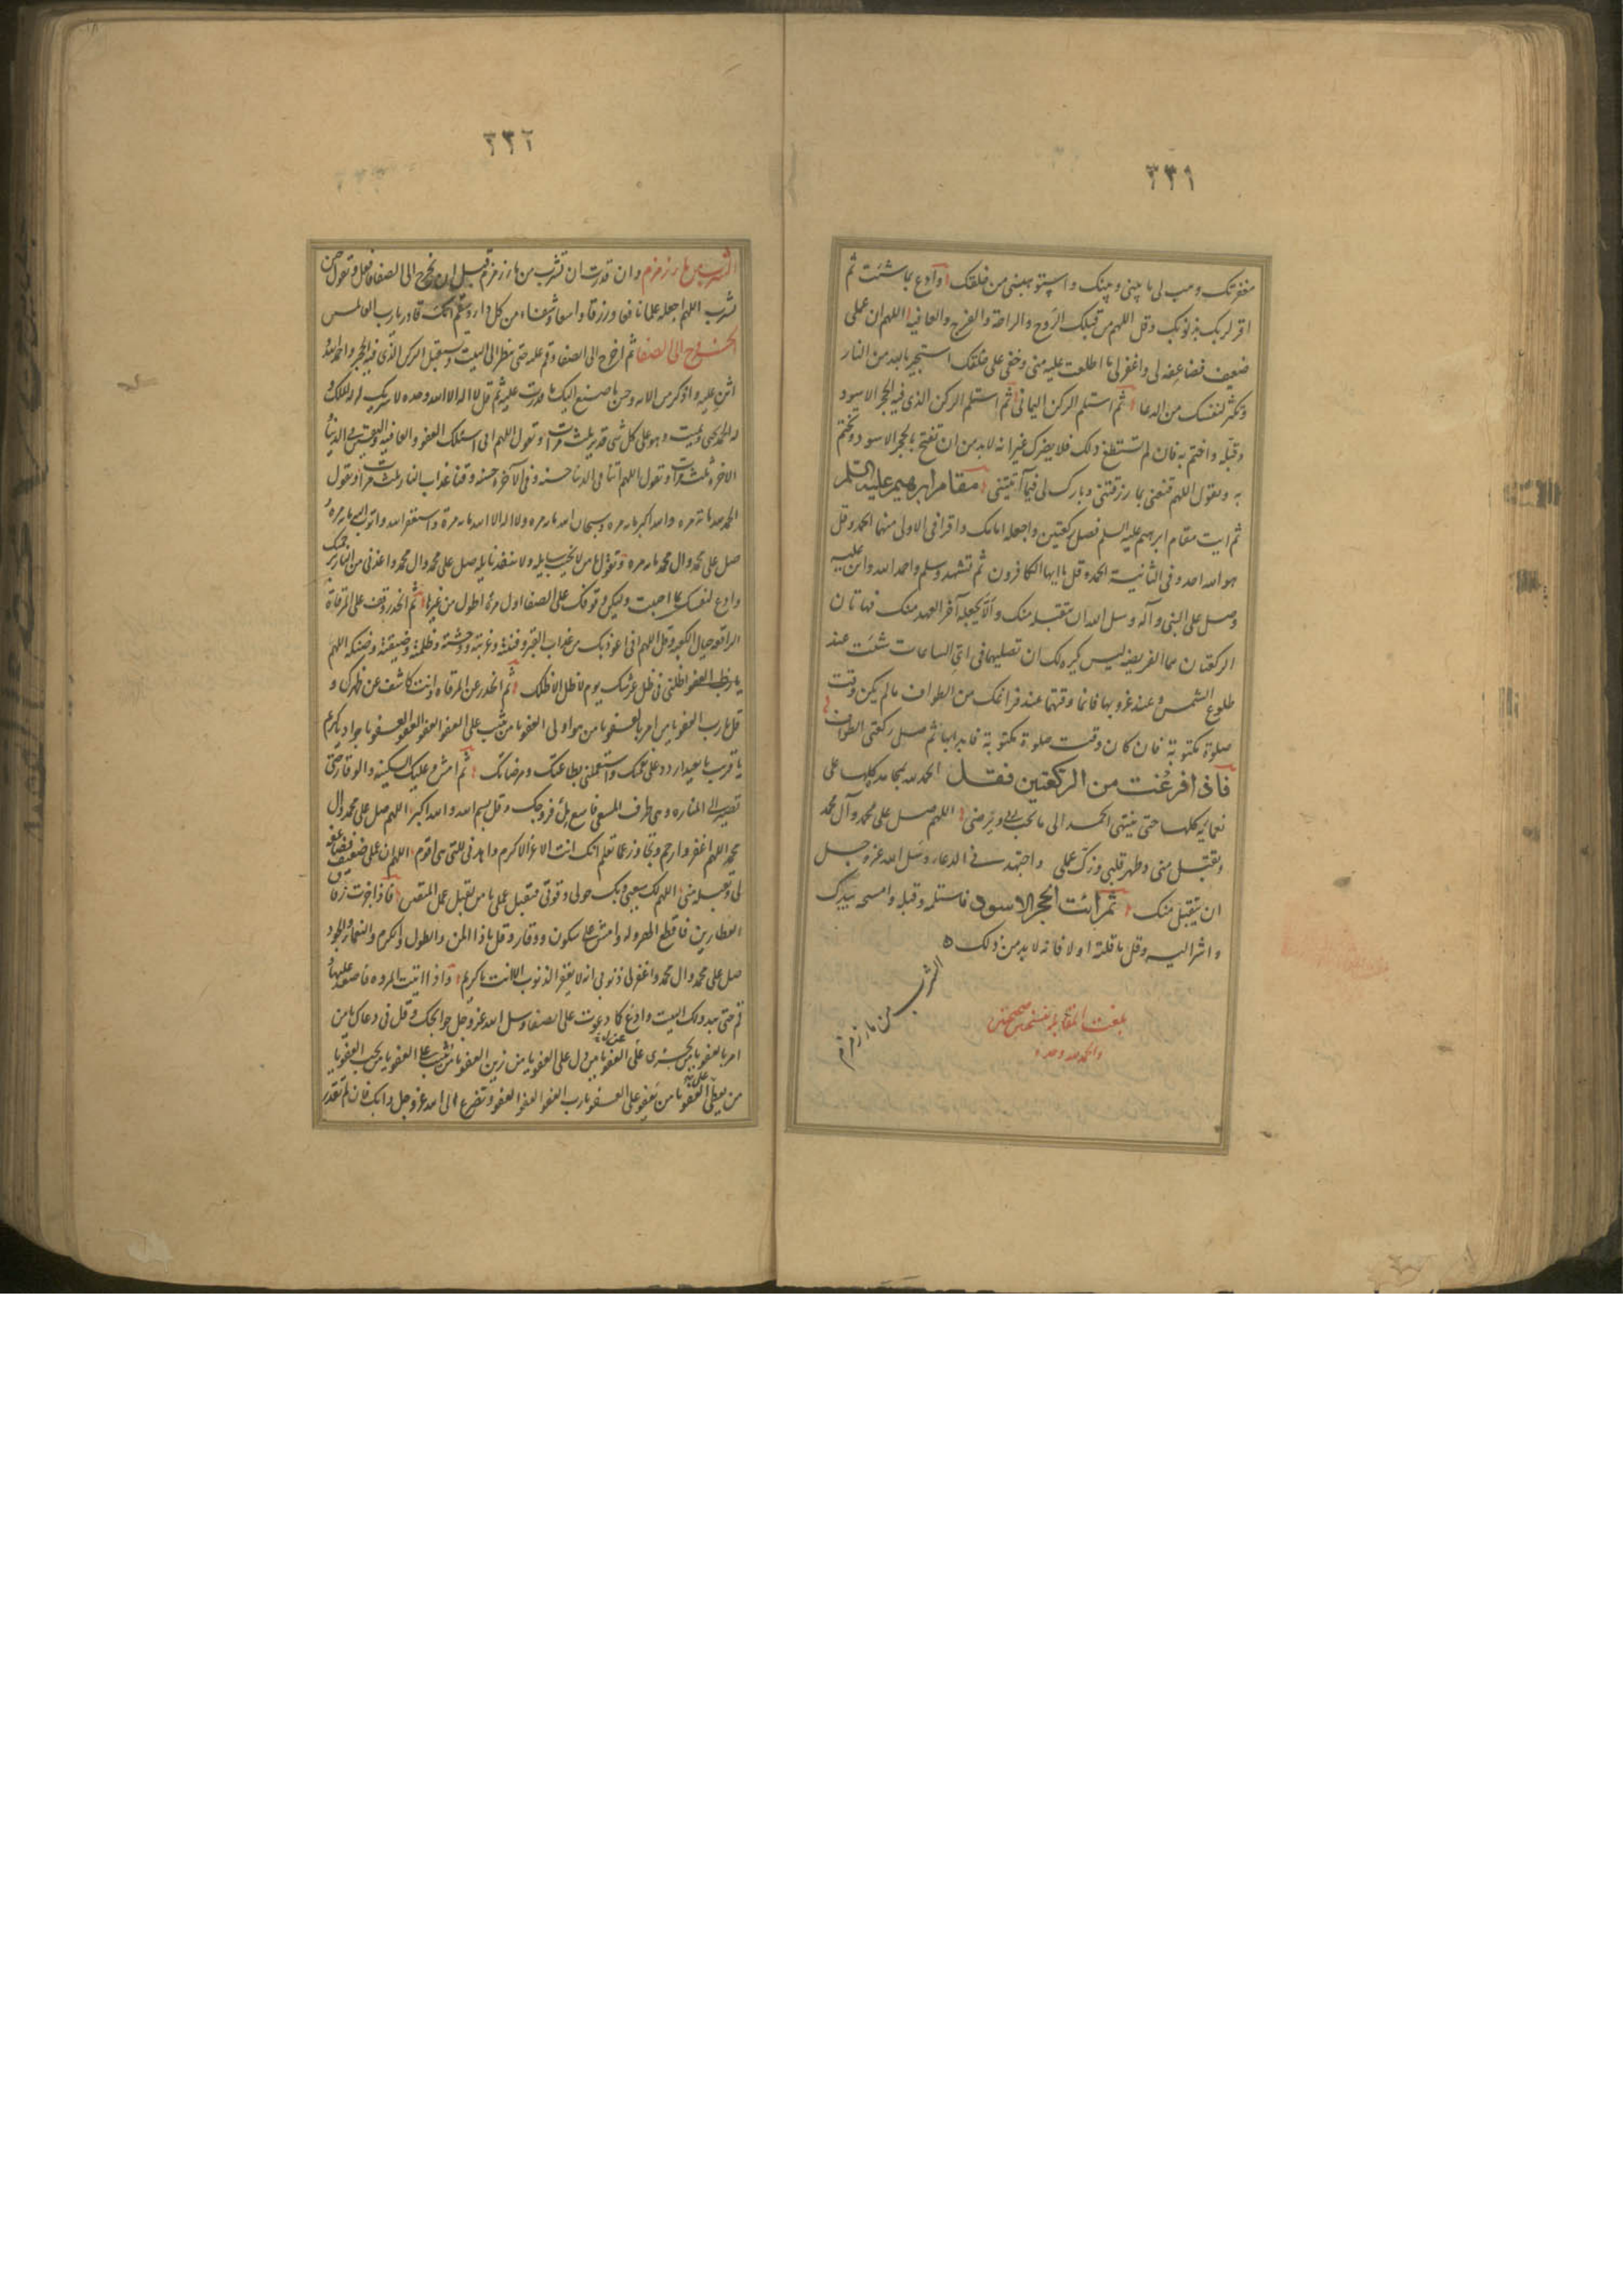 ٣٣١
مغفرتك وهب لي ما بيني وبينك واستوهبني من خلقك وادع بما شئت ثم
اقر لربك بذنوبك وقل اللهم من قبلك الروح والراحة والفرج والعافية اللهم ان عملي
ضعيف فضاعفه لي واغفر لي ما اطلعت عليه مني وخفي على خلقك استجير بالله من النار
وتكثر لنفسك من الدعا ثم استلم الركن اليماني ثم استلم الركن الذي فيه الحجر الاسود
وقبله واختم به فان لم تستطع ذلك فلا يضرك غير انه لا بد من ان تفتح بالحجر الاسود وتختم
به وتقول اللهم قنعني بما رزقتني وبارك لي فيما آتيتني مقام ابرهيم عليه السلم
ثم ايت مقام ابرهيم عليه السلم فصل ركعتين واجعله امامك واقرا في الاولى منهما الحمد وقل
هو الله احد وفي الثانية الحمد وقل يا ايها الكافرون ثم تشهد وسلم واحمد الله واثن عليه
وصل على النبي وآله وسل الله ان يتقبله منك والا يجعله آخر العهد منك فهاتان
الركعتان هما الفريضة ليس يكره لك ان تصليهما في اي الساعات شئت عند
طلوع الشمس وعند غروبها فانما وقتهما عند فراغك من الطواف ما لم يكن وقت
صلوة مكتوبة فان كان وقت صلوة مكتوبة فابدا بها ثم صل ركعتي الطواف
فاذا فرغت من الركعتين فقل الحمد لله بمحامده كلها على
نعمائه كلها حتى ينتهي الحمد الى ما يحب ربي ويرضى اللهم صل على محمد وآل محمد
وتقبل مني وطهر قلبي وزك عملي واجتهد في الدعاء وسل الله عز وجل
ان يتقبل منك ثم ائت الحجر الاسود فاستلمه وقبله وامسحه بيدك
واشر اليه وقل ما قلته اولا فانه لا بد من ذلك
الشرب من ماء زمزم
بلغت المقابلة بنسختين صحيحتين
والحمد لله وحده
٣٣٢
الشرب من ماء زمزم وان قدرت ان تشرب من ماء زمزم قبل ان تخرج الى الصفا فافعل وتقول حين
تشرب اللهم اجعله علما نافعا ورزقا واسعا وشفاء من كل داء وسقم انك قادر يا رب العالمين
الخروج الى الصفا ثم اخرج الى الصفا وقم عليه حتى تنظر الى البيت وتستقبل الركن الذي فيه الحجر واحمد الله و
اثن عليه واذكر من الائه وحسن ما صنع اليك ما قدرت عليه ثم قل لا اله الا الله وحده لا شريك له له الملك و
له الحمد يحيي ويميت وهو على كل شي قدير ثلث مرات وتقول اللهم اني اسئلك العفو والعافية واليقين في الدنيا و
الاخرة ثلث مرات وتقول اللهم آتنا في الدنيا حسنة وفي الآخرة حسنة وقنا عذاب النار ثلث مرات وتقول
الحمد لله مائة مره والله اكبر مائه مره وسبحان الله مائه مره ولا اله الا الله مائه مرة واستغفر الله واتوب اليه مائه مره و
صل على محمد وال محمد مائه مره وتقول يا من لا يخيب سائله ولا ينفد نائله صل على محمد وال محمد واعذني من النار برحمتك
وادع لنفسك بما احببت وليكن وقوفك على الصفا اول مرة اطول من غيرها ثم انحدر وقف على المرقاة
الرابعة حيال الكعبة وقل اللهم اني اعوذ بك من عذاب القبر وفتنته وغربته ووحشته وظلمته وضيقه وضنكه اللهم
اظلني في ظل عرشك يوم لا ظل الا ظلك ثم انحدر عن المرقاة وانت كاشف عن ظهرك و
قل يا رب العفو يا من امر بالعفو يا من هو اولى بالعفو يا من يثيب على العفو العفو العفو العفو يا جواد يا كريم
يا قريب يا بعيد اردد علي نعمتك واستعملني بطاعتك ومرضاتك ثم امش وعليك السكينة والوقار حتى
تصير الى المناره وهي طرف المسعى فاسع ملئ فروجك وقل بسم الله والله اكبر اللهم صل على محمد وال
محمد اللهم اغفر وارحم وتجاوز عما تعلم انك انت الاعز الاكرم واهدني للتي هي اقوم اللهم ان عملي ضعيف فضاعفه
لي وتقبله مني اللهم لك سعيي وبك حولي وقوتي فتقبل عملي يا من يقبل عمل المتقين فاذا جزت زقاق
العطارين فاقطع الهروله وامش على سكون ووقار وقل يا ذا المن والطول والكرم والنعماء والجود
صل على محمد وال محمد واغفر لي ذنوبي انه لا يغفر الذنوب الا انت يا كريم فاذا اتيت المروه فاصعد عليها و
قم حتى يبدو لك البيت وادع كما دعوت على الصفا وسل الله عز وجل حوائجك وقل في دعاك يا من
امر بالعفو يا من يجزي على العفو يا من دل على العفو يا من زين العفو يا من يثيب على العفو يا من يحب العفو يا
من يعطي على العفو يا من يعفو على العفو يا رب العفو العفو العفو العفو وتضرع الى الله عز وجل وابك فان لم تقدر